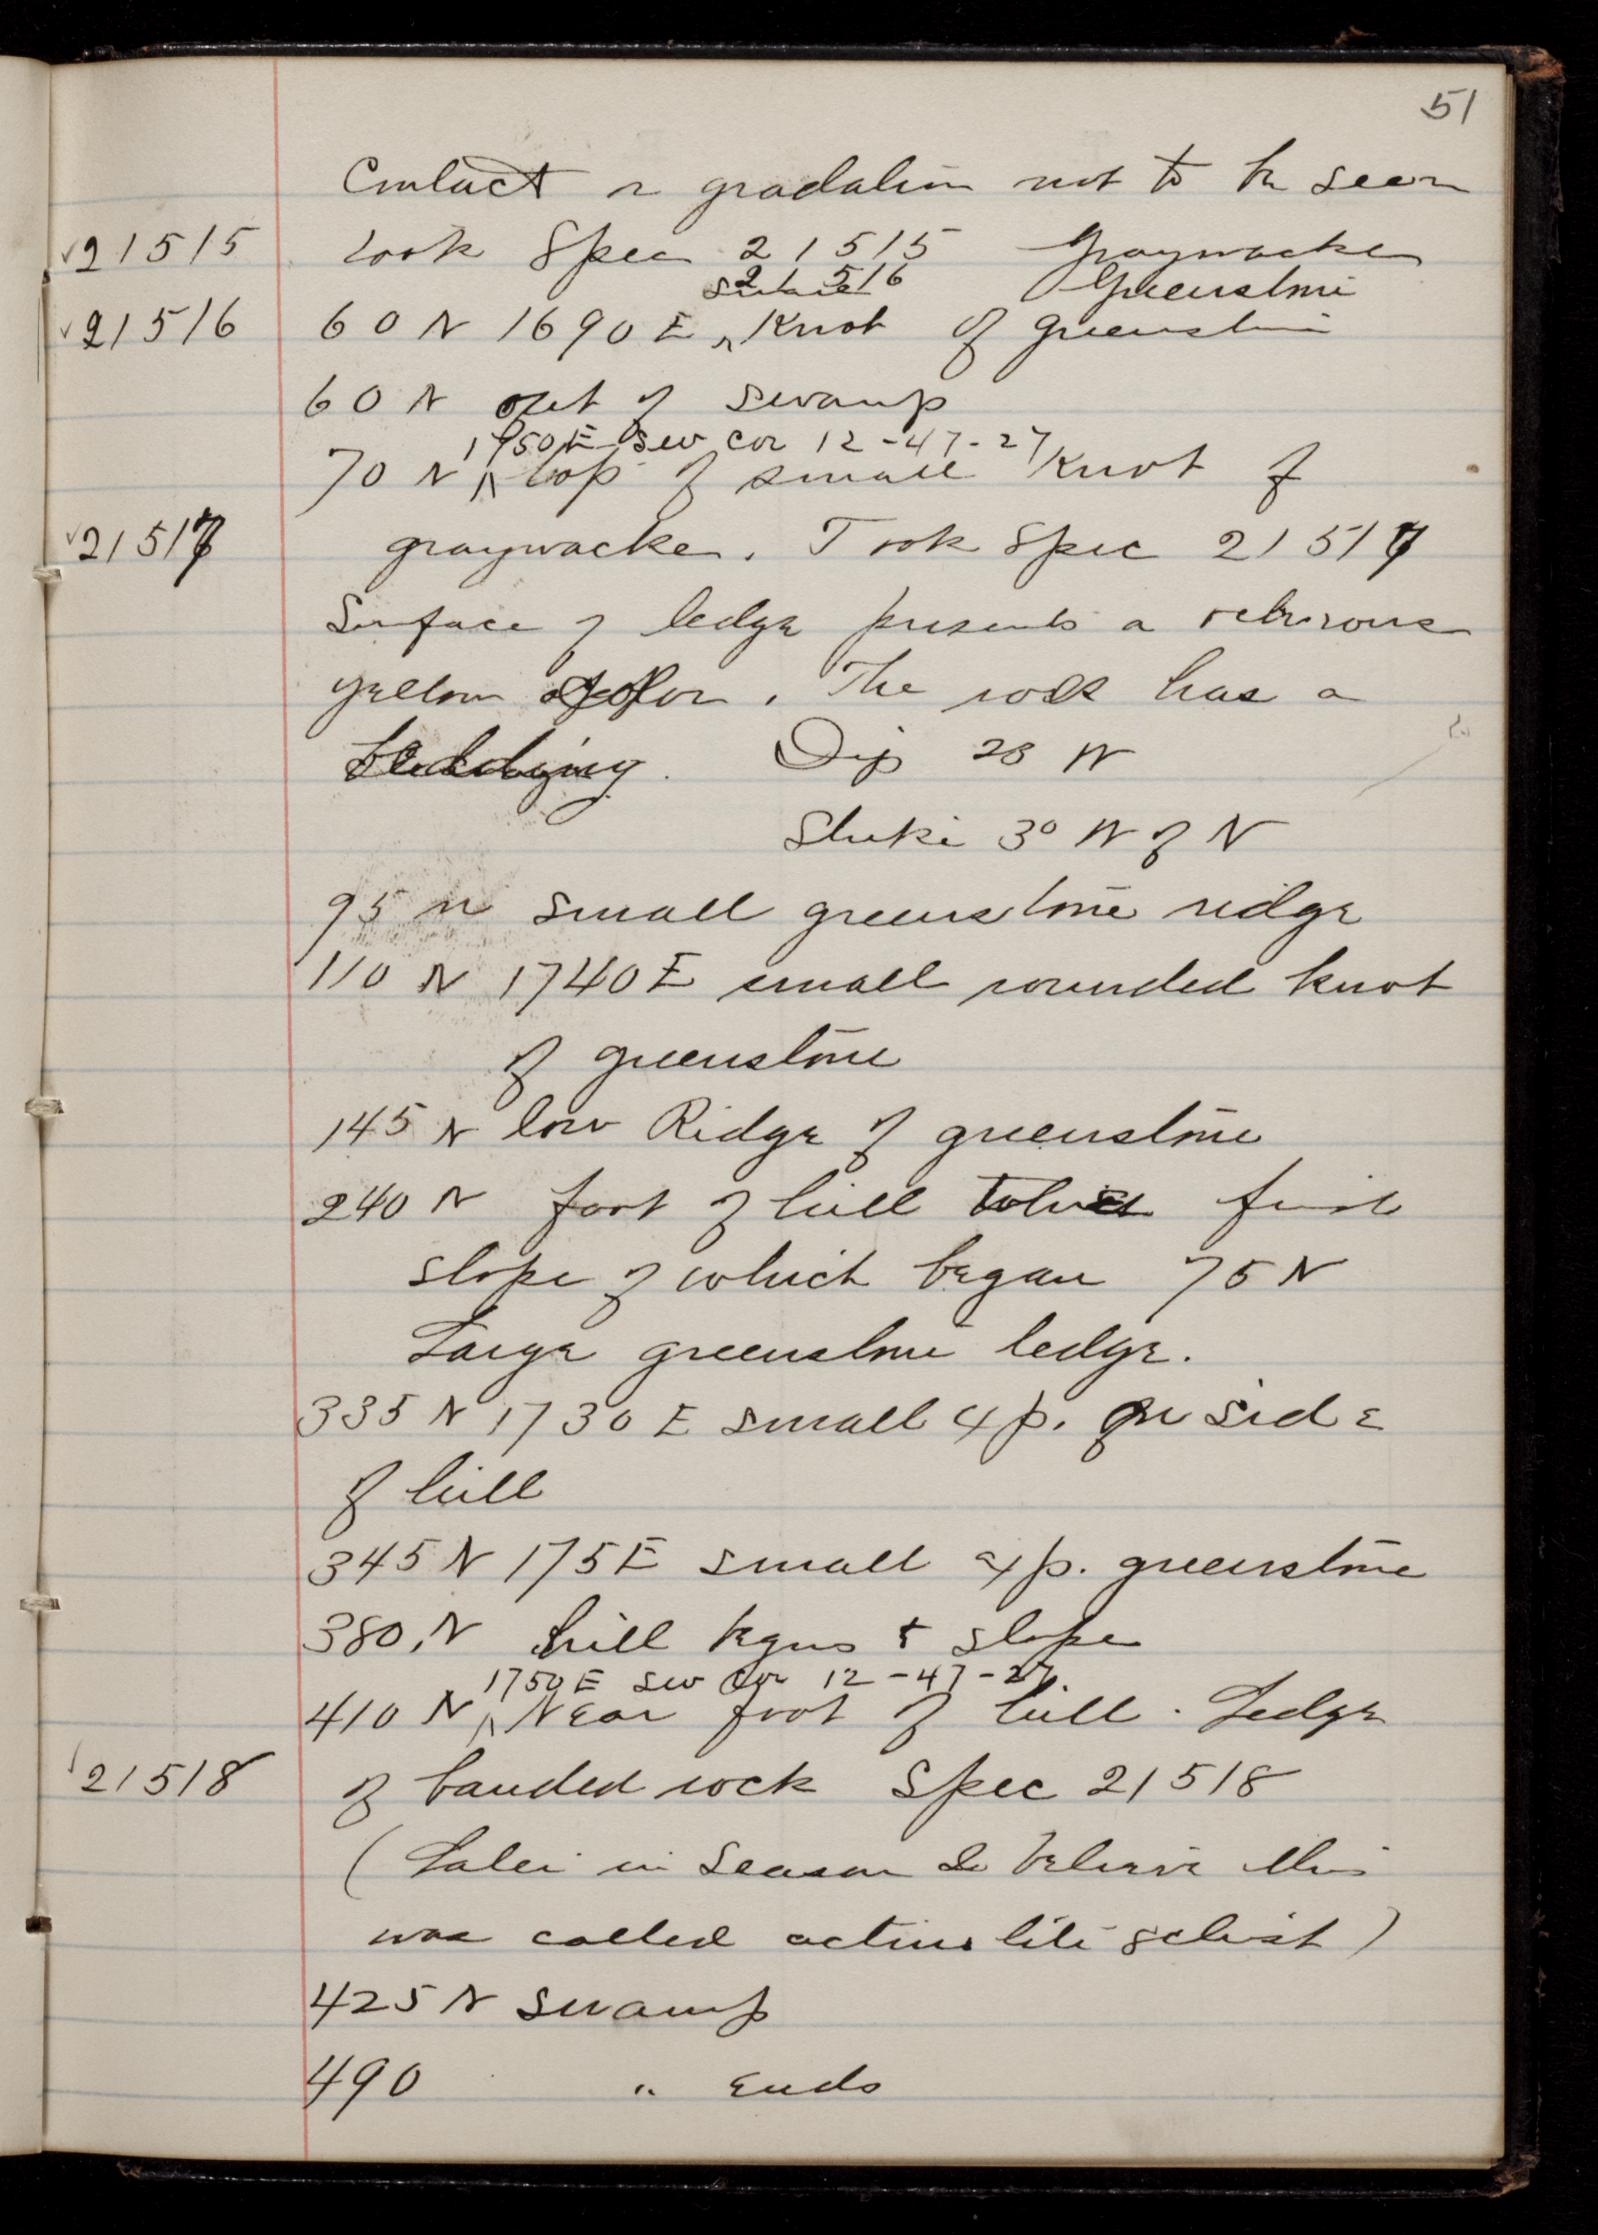 51
Contact or gradation not to be seen
21515 Took Spec 21515 Graywacke
21516 Greenstone
small
21516 60 N 1690 E Knob of greenstone
60 N out of swamp
1750 E SW cor 12-47-27
70 N top of small Knob of
21517 graywacke. Took Spec 21517
Surface of ledge presents a
yellow color. The rock has a
bedding. Dip 28 W
Strike 3° W of N
95 N small greenstone ridge
110 N 1740 E small rounded knob
of greenstone
145 N low Ridge of greenstone
240 N foot of hill first
slope of which began 75 N
Large greenstone ledge.
335 N 1730 E small xp. on side
of hill
345 N 175 E small xp. greenstone
380 N hill begins to slope
1750 E SW Cor 12-47-27
410 N Near foot of hill. Ledge
21518 of banded rock Spec 21518
(Later in Season I believe this
was called actinolite schist)
425 N Swamp
490 " Ends